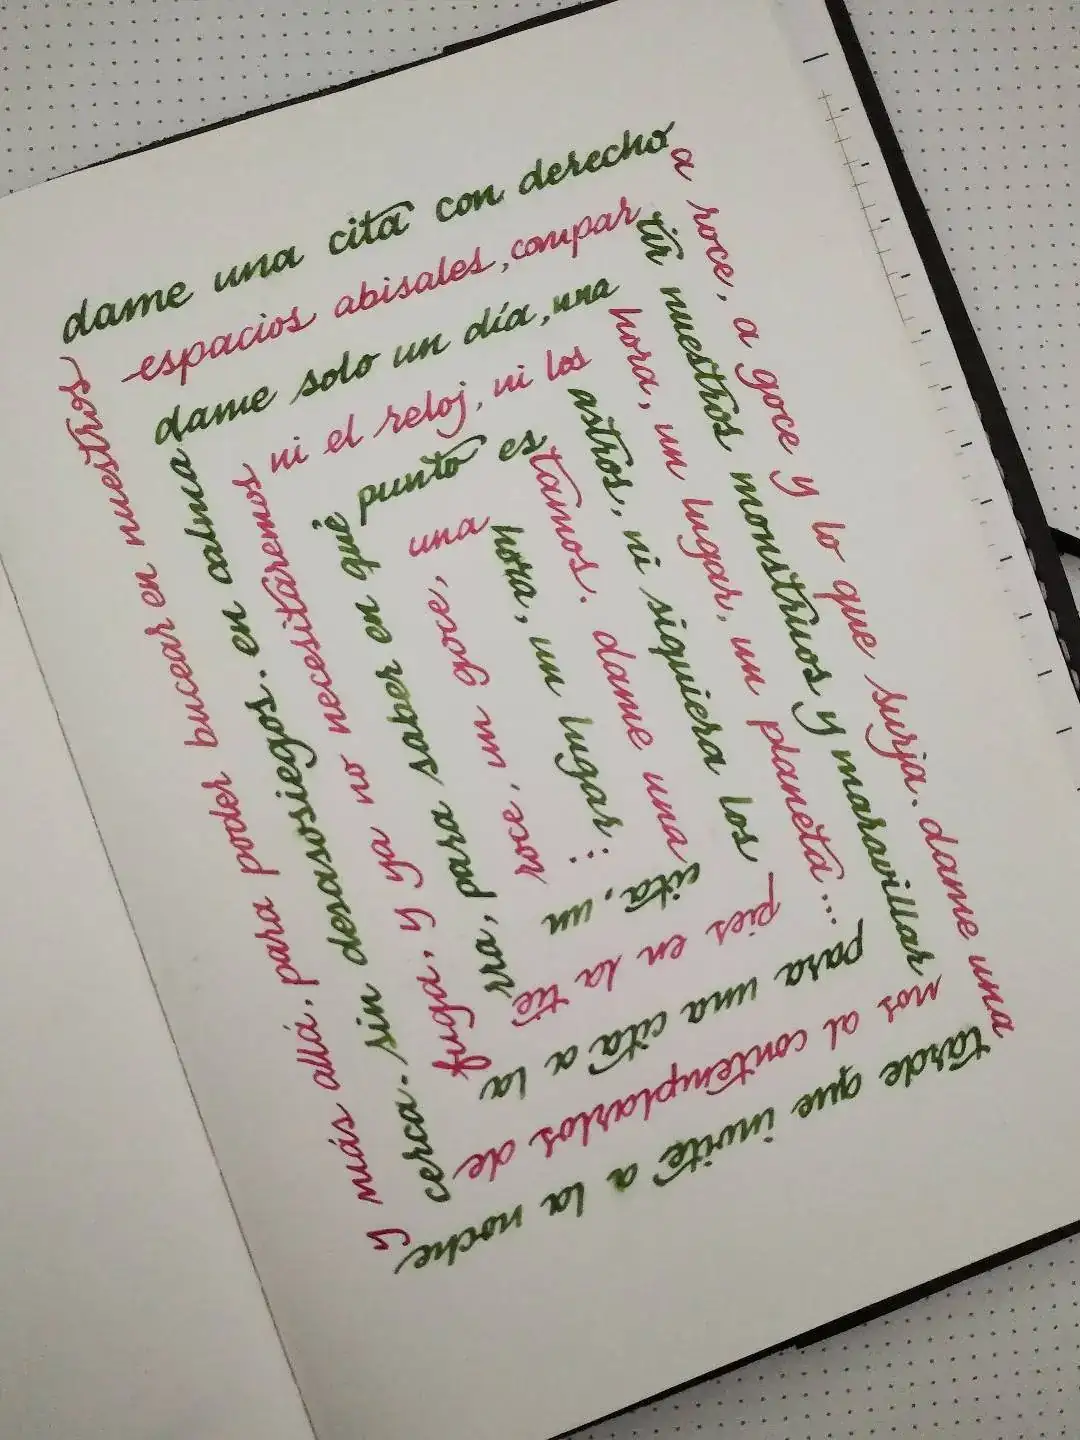 dame una cita con derecho
a roce, a goce y lo que surja. dame una
tarde que invite a la noche
y más allá, para poder bucear en nuestros
espacios abisales, compar
tir nuestros monstruos y maravillar
nos al contemplarlos de
cerca. sin desasosiegos. en calma
dame solo un día, una
hora, un lugar, un planeta...
para una cita a la
fuga, y ya no necesitaremos
ni el reloj, ni los
astros, ni siquiera los
pies en la tie
rra, para saber en qué
punto es
tamos. dame una
cita, un
roce, un goce,
una
hora, un lugar...